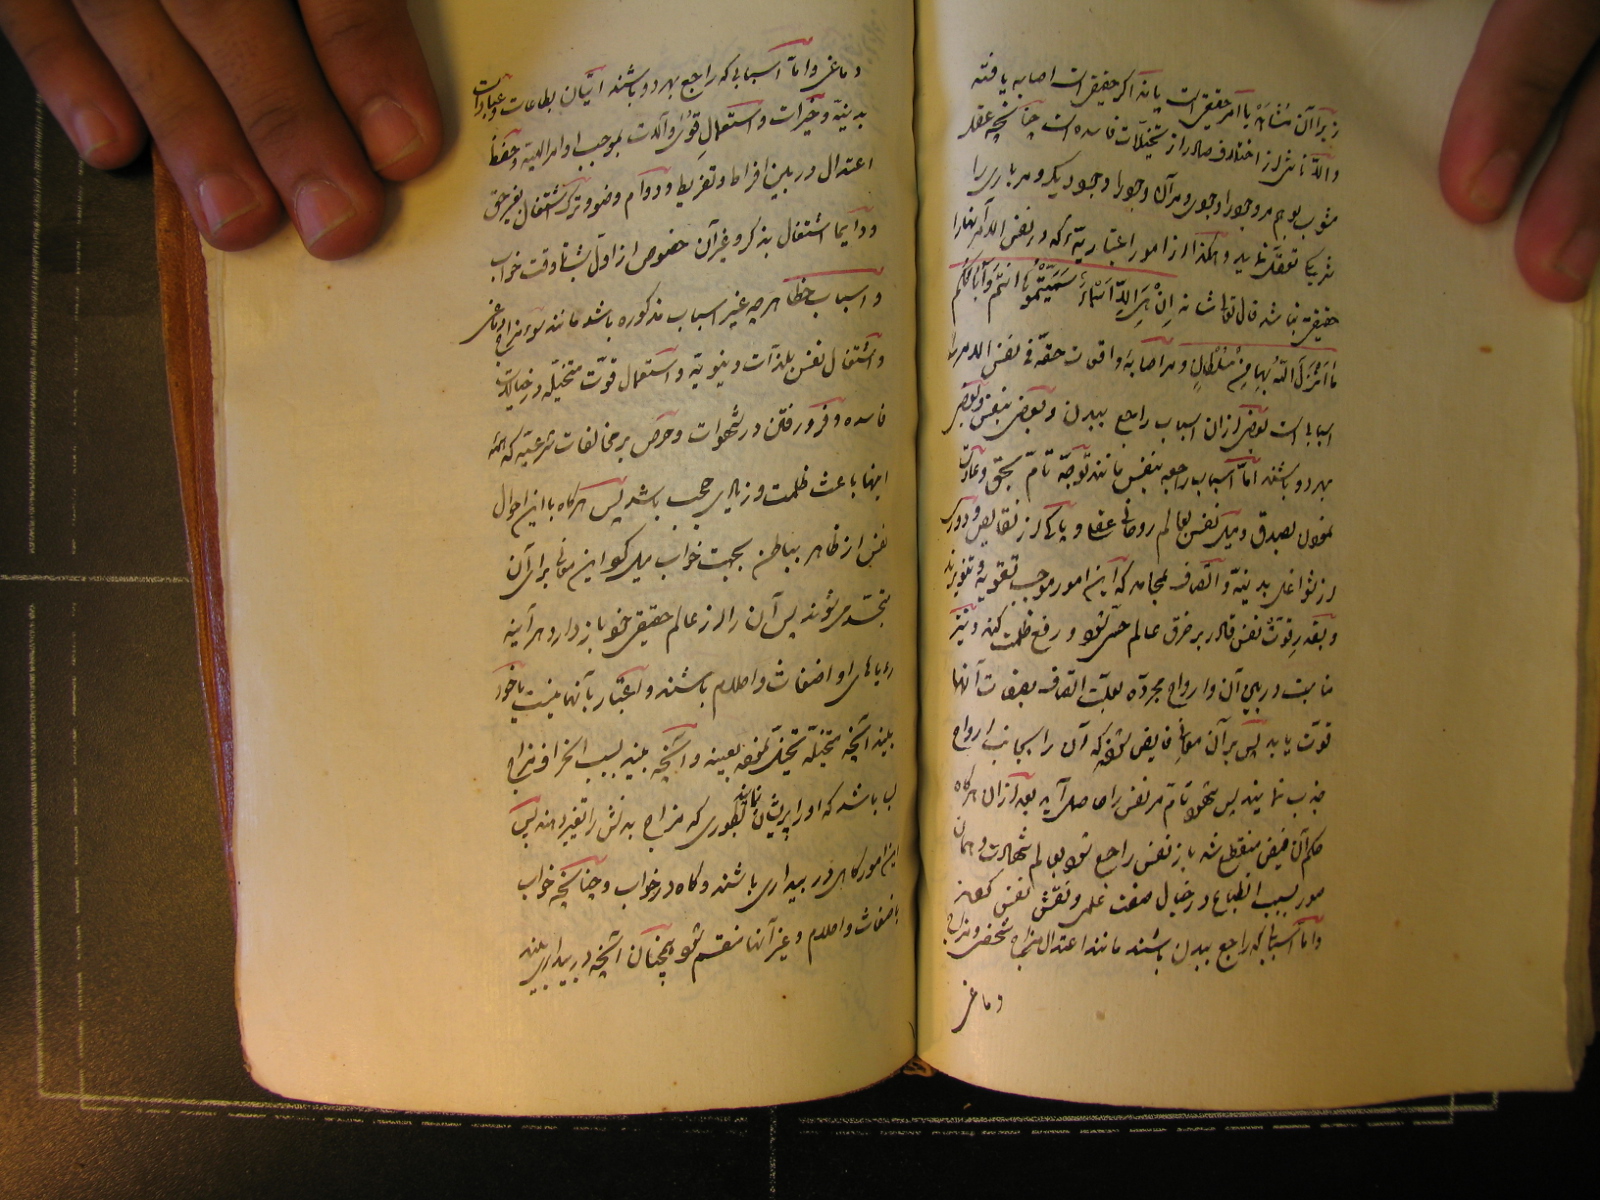 زیرا آن مشاهَد یا امر حقیقی است یا نه اگر حقیقی است اصابه یافته
والّا ناشی از اختلاف صادر از تخیّلات فاسده است چنانچه عقل
مشوب بوهم مر وجود را وجودی و مر آن وجود را وجود دیگر و مر باری را
شریک تعقّل نماید و هکذا از امور اعتباریّه که در نفس الامر آنها را
حقیقی نباشد قال تعالی شانه اِنْ هِیَ اِلّا اَسْمَاءٌ سَمَّیْتُمُوهَا اَنْتُمْ وَآبَاؤُکُم
مَا اَنْزَلَ اللّٰهُ بِهَا مِنْ سُلْطَانٍ و مر اصابه واقعات حقه فی نفس الامر را
اسبابی است بعضی از آن اسباب راجع ببدن و بعضی بنفس و بعضی
بهر دو باشند امّا اسباب راجعه بنفس مانند توجّه تامّ بحق و عادت
نمودن بصدق و میل نفس بعالم روحانی عقلی و پاکی از نقایص و دوری
از شواغل بدنیّه و اتّصاف بمحامد که این امور موجب تقویه و تنویرند
و بقدر قوّت نفس قادر بر خرق عالم حسّی شود و رفع ظلمت کند و نیز
مناسبت در میان آن و ارواح مجرّده بعلّت اتّصاف بصفات آنها
قوّت یابد پس بر آن معانی فایض شود که آن را بجانب ارواح
جذب نمایند پس شهود تامّ مر نفس را حاصل آید بعد از آن هرگاه
حکم آن فیض منقطع شد باز نفس راجع شود بعالم شهادت و همان
صور بسبب انطباع در خیال صفت علمی و نقش نفس
و امّا اسبابی که راجع ببدن باشند مانند اعتدال مزاج شخصی و مزاج
دماغی
دماغی و امّا اسبابی که راجع بهر دو باشند اتیان بطاعات و عبادات
بدنیّه و خیرات و استعمالِ قُویٰ و آلات بموجب اوامر الهیّه و حفظ
اعتدال در بین افراط و تفریط و دوام وضو و ترک اشتغال بغیر حق
و دایما اشتغال بذکر و غیر آن خصوص از اوّل شب تا وقت خواب
و اسباب خطا هرچه غیر اسباب مذکوره باشد مانند سوء مزاج دماغی
و اشتغال نفس بلذّات دنیویّه و استعمال قوّت متخیّله در خیالات
فاسده و فرو رفتن در شهوات و حرص بر مخالفات شرعیّه که همه
اینها باعث ظلمت و زیادی حجب باشد پس هرگاه با این احوال
نفس از ظاهر بباطن بجهت خواب میل کند این معانی برای آن
متجسّد می‌شوند پس آن را از عالم حقیقی خود باز دارد هر آینه
رؤیاهای او اضغاث و احلام باشند و اعتبار بآنها نیست یا خود
بیند آنچه متخیّله تخیّل نموده بعینه و آنچه بیند بسبب انحراف مزاج
باشد که او را پریشان نماید بطوری که مزاج بدنش را تغییر دهند پس
این امور گاهی در بیداری باشند و گاه در خواب و چنانچه خواب
باضغاث و احلام و غیر آنها منقسم شود همچنان آنچه در بیداری بیند